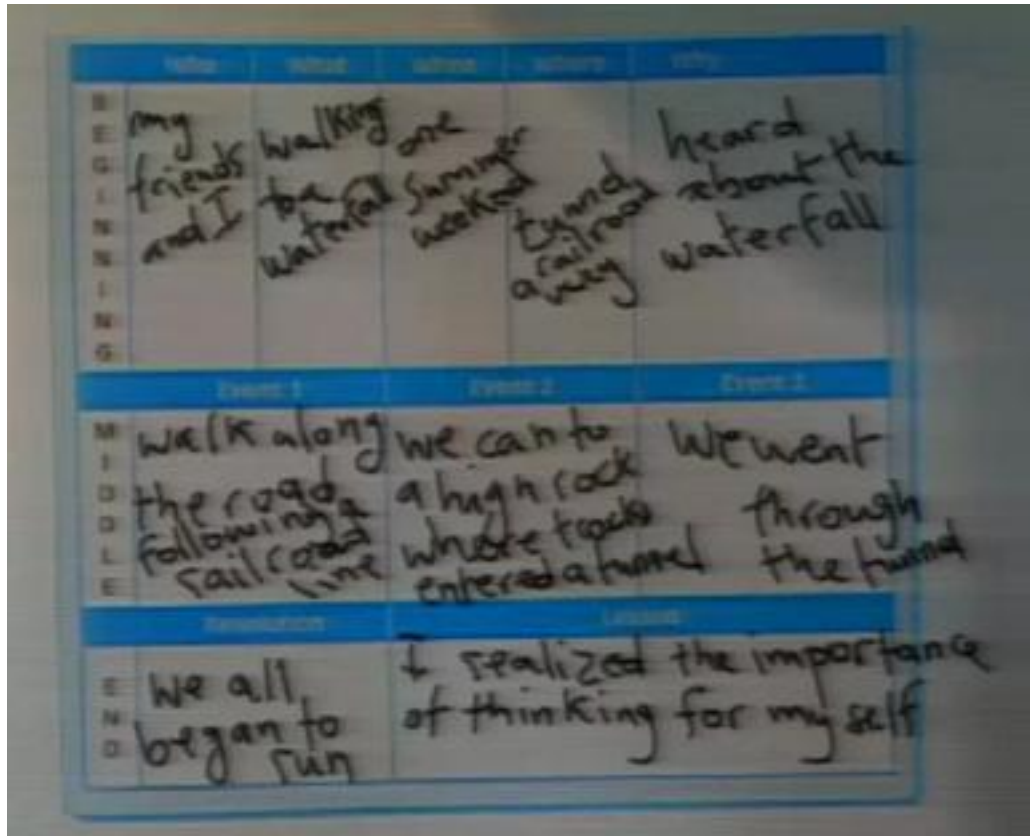 Who What When Where Why
BEGINNING
my
friends
and I
walking
to a
waterfall
one
summer
weekend
tunnel
railroad
away
heard
about the
waterfall
Event 1 Event 2 Event 3
MIDDLE
walk along
the road
following a
railroad
line
we can to
a high rock
where tracks
entered a tunnel
We went
through
the tunnel
Resolution Lesson
END
We all
began to
run
I realized the importance
of thinking for my self